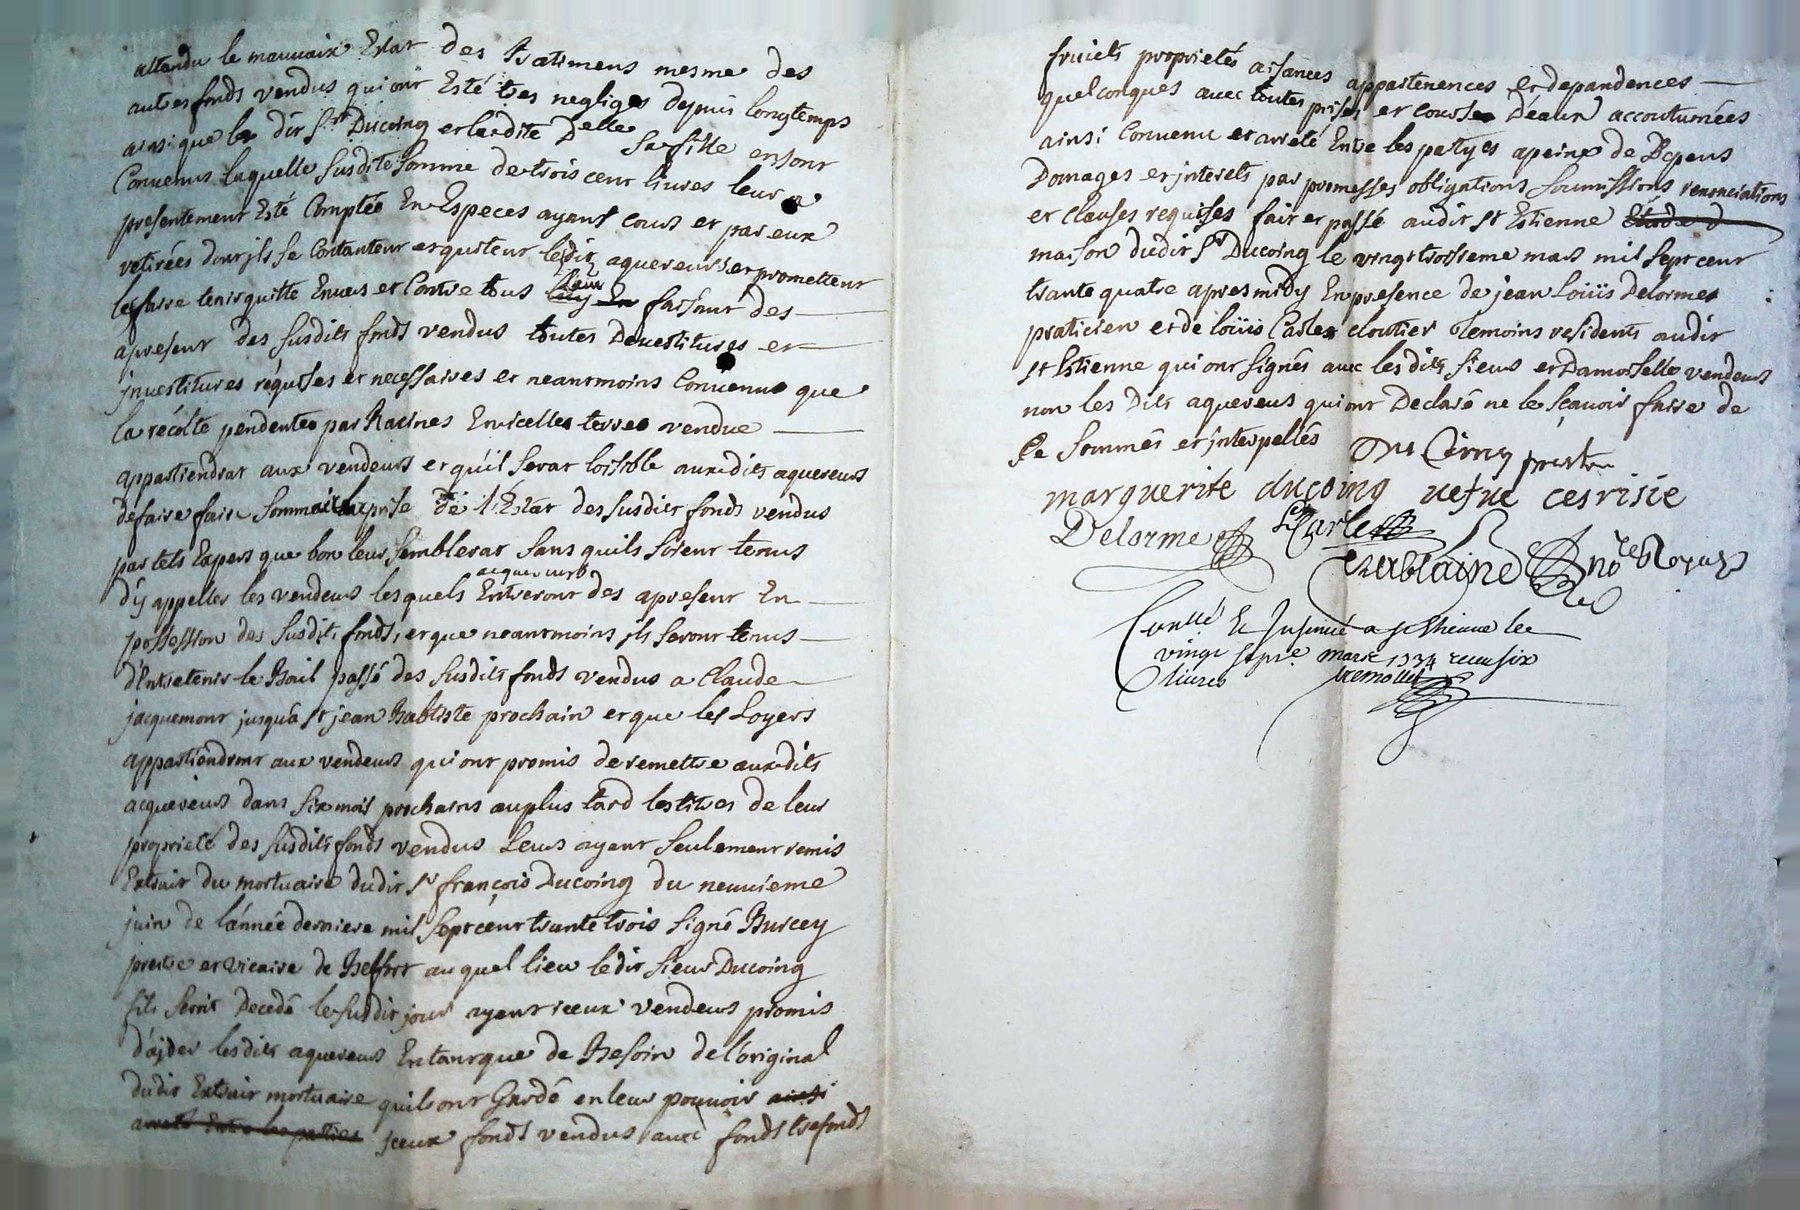 attandu le mauvaix Estat des Batimens mesme des
autres fonds vendus qui ont Esté tres negligés depuis longtemps
ainsi que le dit Sr. Ducoing et laditte Delle sa fille en sont
Convenus laquelle susditte somme de trois cent livres leur a
presentement Esté Comptée En Especes ayant cours et par eux
retirées dont jls se Contantent et quittent lesdits aquereurs et promettent
les faire tenir quitte Envers et Contre tous leur faisant des
apresent des susdits fonds vendus toutes Devestitures et
jnvestitures requises et necessaires et neantmoins Convenus que
la récolte pendente par Racines En icelles terres vendue
appartiendrat aux vendeurs et qu'il serat loisible auxdits aquereurs
de faire faire Sommaire prise de l'Estat des susdits fonds vendus
par tels Expers que bon leur semblerat sans quils soient tenus
d'ÿ appeller les vendeurs lesquels acquereurs Entreront des apresent En
possession des susdits fonds, et que neantmoins jls seront tenus
d'Entretenir le Bail passé des susdits fonds vendus a Claude
jacquemont jusqu'a St jean Babtiste prochain et que les Loyers
appartiendront aux vendeurs qui ont promis de remettre auxdits
acquereurs dans six mois prochains au plus tard les titres de leur
propriete des susdits fonds vendus Leurs ayant seulement remis
Extrait du mortuaire dudit Sr françois Ducoing du neuvieme
juin de l'année derniere mil sept cent trante trois signé Burcey
prestre et vicaire de Belfort au quel lieu ledit sieur Ducoing
fils seroit Decedé le susdit jour ayant iceux vendeurs promis
d'ajder lesdits aquereurs Entant que de Besoin de l'original
dudit Extrait mortuaire quils ont Gardé en leur pouvoir ainsi
arreté Entre les parties jceux fonds vendus avec fonds trefonds
fruicts proprietés aisances appartenences et dependences
quelconques avec toutes prises et courses D'eaux accoutumées
ainsi Convenu et arreté Entre les partyes a peine de Depens
Domages et jnterets par promesses obligations soumissions renonciations
et clauses requises fait et passé audit St Estienne
maison dudit Sr Ducoing le vingt troisieme mars mil sept cent
trante quatre apres midy En presence de jean Loüis Delorme
praticien et de loüis Carles cloutier temoins residents audit
St Estienne qui ont signés avec lesdits sieur et Damoiselle vendeurs
non les Dits aquereurs qui ont Declaré ne le sçavoir faire de
Ce sommés et jnterpellés Du Coing prestre
marguerite ducoing vefve cesrisie
Delorme L Carles
Trablaine no.re Royal
Conllé Et Jnsinué a St Etienne le
vingt sept.e mars 1734 receu six
livres tremollet